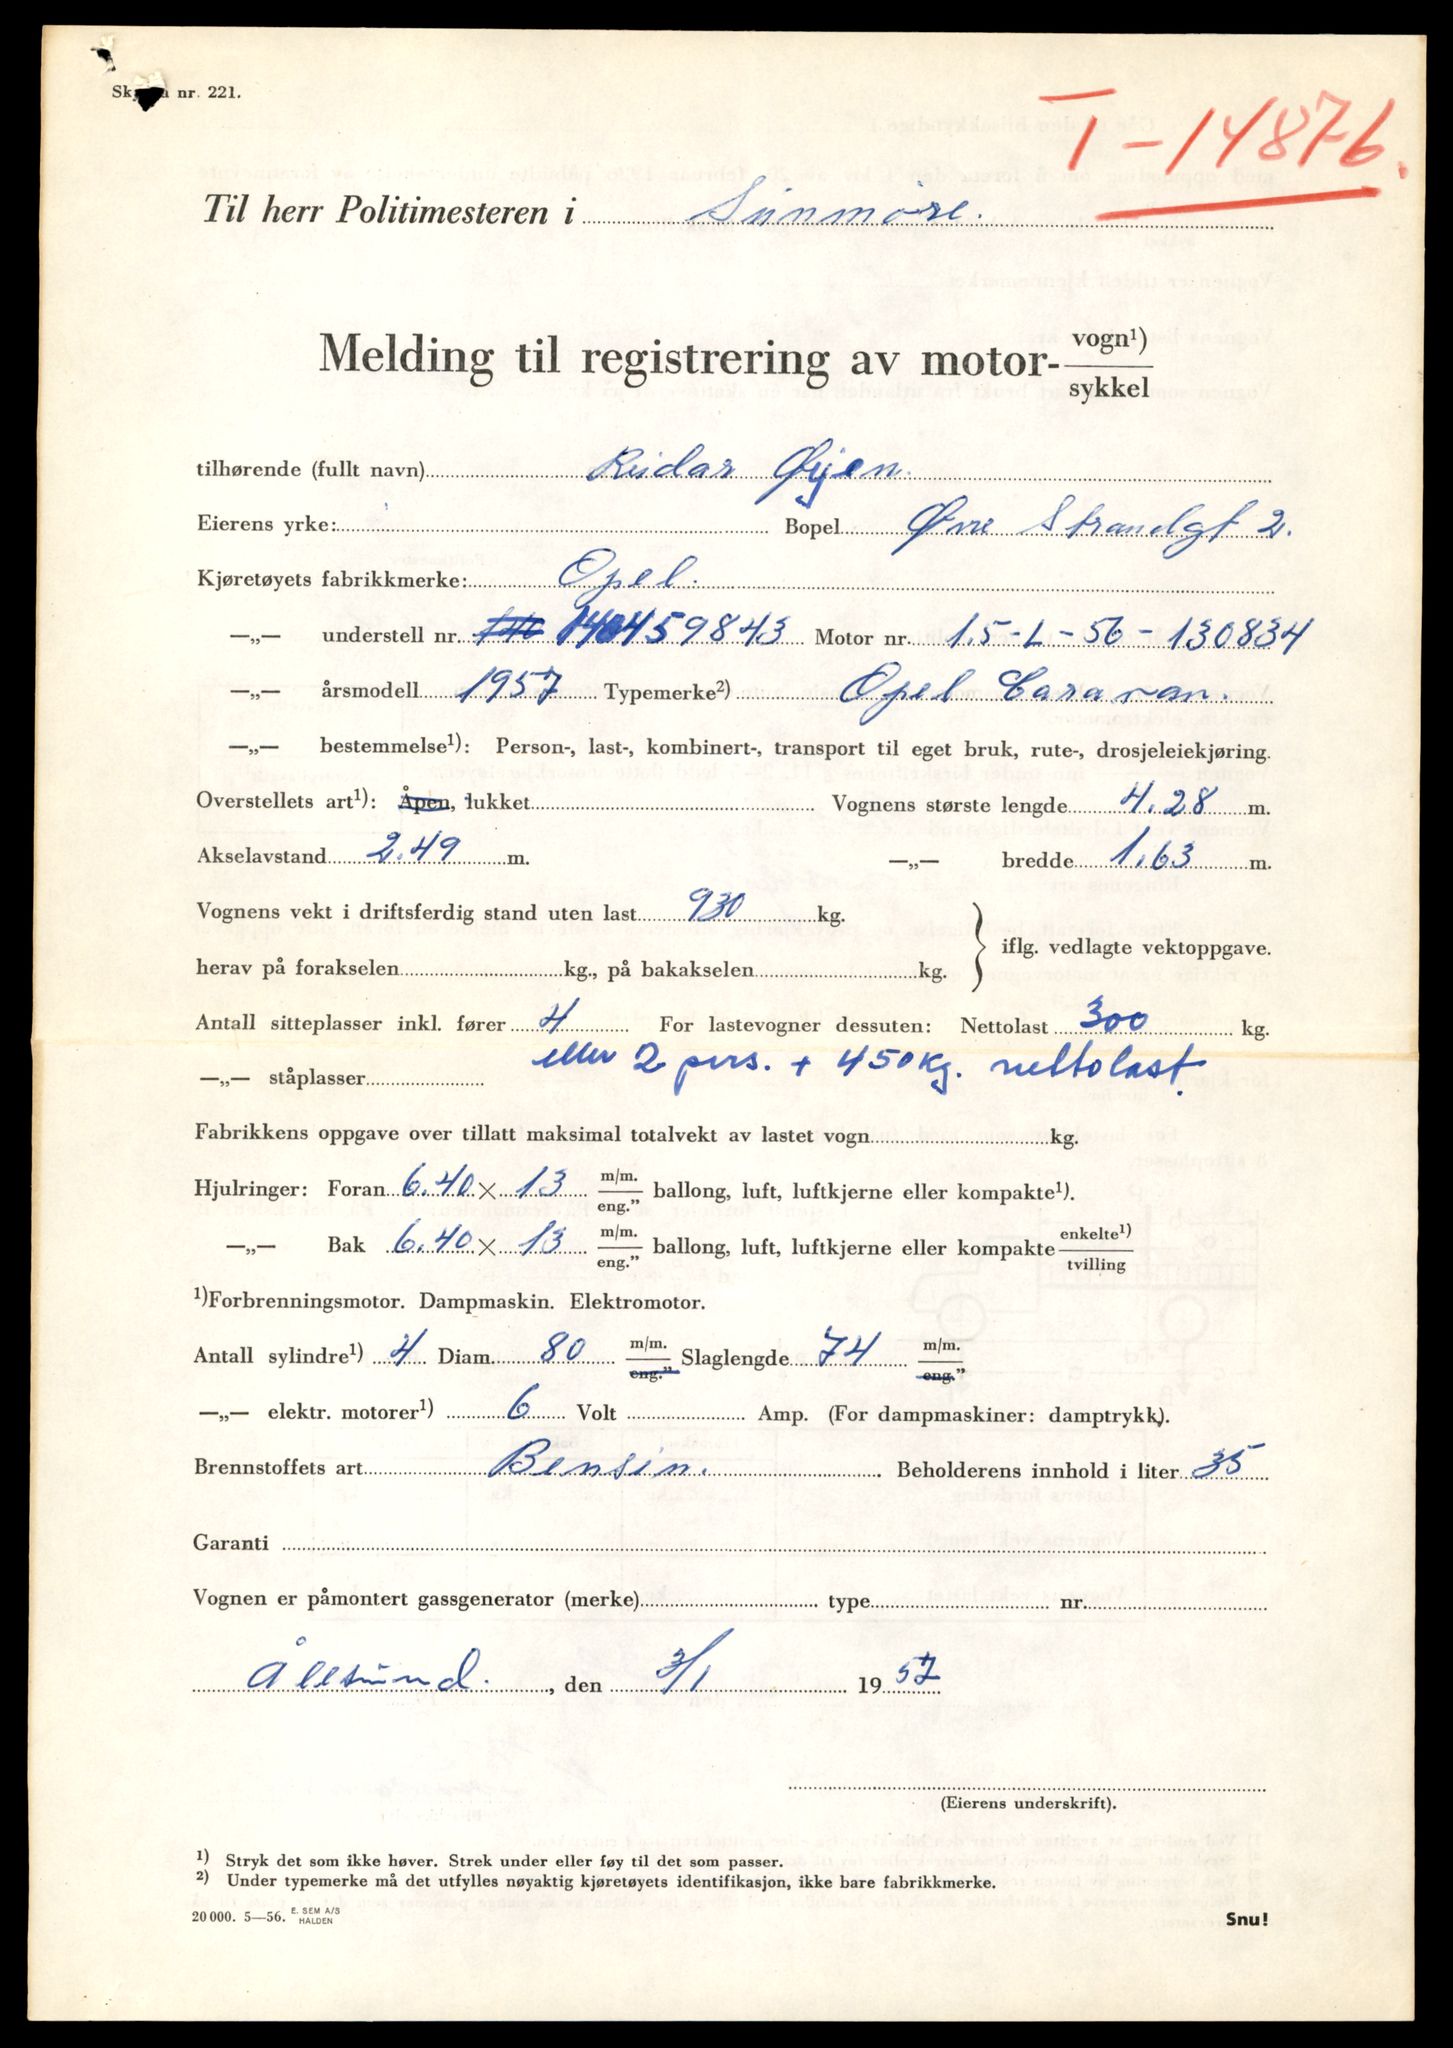 Skjema nr. 221.
T-14876.
Til herr Politimesteren i Sunnmøre.
Melding til registrering av motor- vogn¹) sykkel
tilhørende (fullt navn) Reidar Øyen.
Eierens yrke: Bopel Øvre Strandgt 2.
Kjøretøyets fabrikkmerke: Opel.
—„— understell nr. 140459843 Motor nr. 1.5-L-56-130834
—„— årsmodell 1957 Typemerke²) Opel Caravan.
—„— bestemmelse¹): Person-, last-, kombinert-, transport til eget bruk, rute-, drosjeleiekjøring.
Overstellets art¹): Åpen, lukket Vognens største lengde 4.28 m.
Akselavstand 2.49 m. —„— bredde 1.63 m.
Vognens vekt i driftsferdig stand uten last 930 kg.
iflg. vedlagte vektoppgave.
herav på forakselen kg., på bakakselen kg.
Antall sitteplasser inkl. fører 4 For lastevogner dessuten: Nettolast 300 kg.
eller 2 pers. + 450 kg. nettolast.
—„— ståplasser
Fabrikkens oppgave over tillatt maksimal totalvekt av lastet vogn kg.
Hjulringer: Foran 6.40 × 13 m/m. eng.” ballong, luft, luftkjerne eller kompakte¹).
—„— Bak 6.40 × 13 m/m. eng.” ballong, luft, luftkjerne eller kompakte enkelte¹) tvilling
¹)Forbrenningsmotor. Dampmaskin. Elektromotor.
Antall sylindre¹) 4 Diam. 80 m/m. eng.” Slaglengde 74 m/m. eng.”
—„— elektr. motorer¹) 6 Volt Amp. (For dampmaskiner: damptrykk).
Brennstoffets art Bensin. Beholderens innhold i liter 35
Garanti
Vognen er påmontert gassgenerator (merke) type nr.
Ålesund., den 3/1 1957
(Eierens underskrift).
¹) Stryk det som ikke høver. Strek under eller føy til det som passer.
²) Under typemerke må det utfylles nøyaktig kjøretøyets identifikasjon, ikke bare fabrikkmerke.
20 000. 5—56. E. SEM A/S HALDEN
Snu!